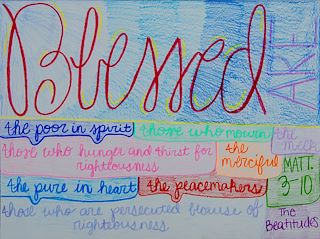 Blessed ARE
the poor in spirit those who mourn the meek
those who hunger and thirst for
righteousness
the
merciful
MATT.
3-10
the pure in heart the peacemakers
those who are persecuted becuse of
righteousness.
The
Beatitudes